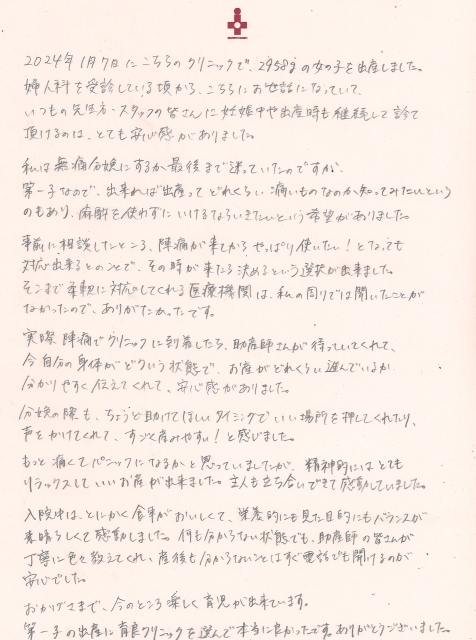 2024年1月7日にこちらのクリニックで、2958gの女の子を出産しました。
婦人科を受診している頃から、こちらにお世話になっていて、
いつもの先生方・スタッフの皆さんに妊娠中や出産時も継続して診て
頂けるのは、とても安心感がありました。
私は無痛分娩にするか最後まで迷っていたのですが、
第一子なので、出来れば出産ってどれくらい痛いものなのか知ってみたいという
のもあり、麻酔を使わずにいけるならいきたいという希望がありました。
事前に相談したところ、陣痛が来てからやっぱり使いたい!となっても
対応出来るとのことで、その時が来たら決めるという選択が出来ました。
そこまで柔軟に対応してくれる医療機関は、私の周りでは聞いたことが
なかったので、ありがたかったです。
実際陣痛でクリニックに到着したら、助産師さんが待っていてくれて、
今自分の身体がどういう状態で、お産がどれくらい進んでいるか
分かりやすく伝えてくれて、安心感がありました。
分娩の際も、ちょうど助けてほしいタイミングでいい場所を押してくれたり、
声をかけてくれて、すごく産みやすい!と感じました。
もっと痛くてパニックになるかと思っていましたが、精神的にはとても
リラックスしていいお産が出来ました。主人も立ち会いできて感動していました。
入院中は、とにかく食事がおいしくて、栄養的にも見た目的にもバランスが
素晴らしくて感動しました。何も分からない状態でも、助産師の皆さんが
丁寧に色々教えてくれ、産後も分からないことはすぐ電話でも聞けるのが
安心でした。
おかげさまで、今のところ楽しく育児が出来ています。
第一子の出産に育良クリニックを選んで本当に良かったです。ありがとうございました。